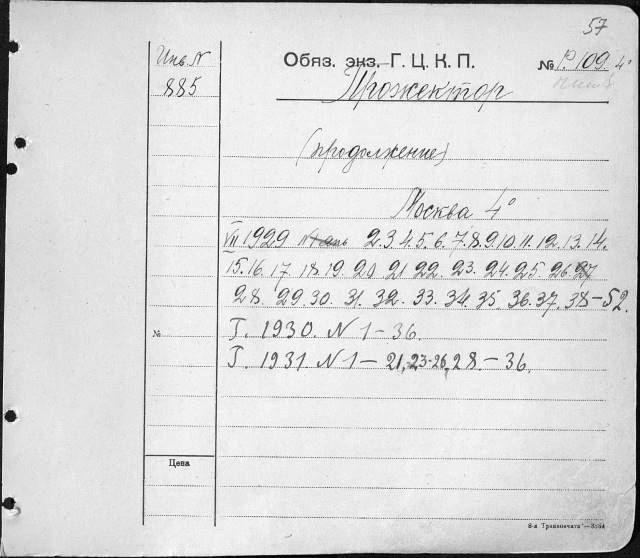 57
Инв. N
885
Обяз. экз. Г. Ц. К. П. № P. 109. 4°
Прожектор
(продолжение)
Москва 4°
VII 1929 2. 3. 4. 5. 6. 7. 8. 9. 10. 11. 12. 13. 14.
15. 16. 17. 18. 19. 20 21 22. 23. 24. 25. 26. 27
28. 29. 30. 31. 32. 33. 34. 35. 36. 37. 38-52.
№
Г. 1930. N 1-36.
Г. 1931. N 1-21, 23-26, 28.-36.
Цена